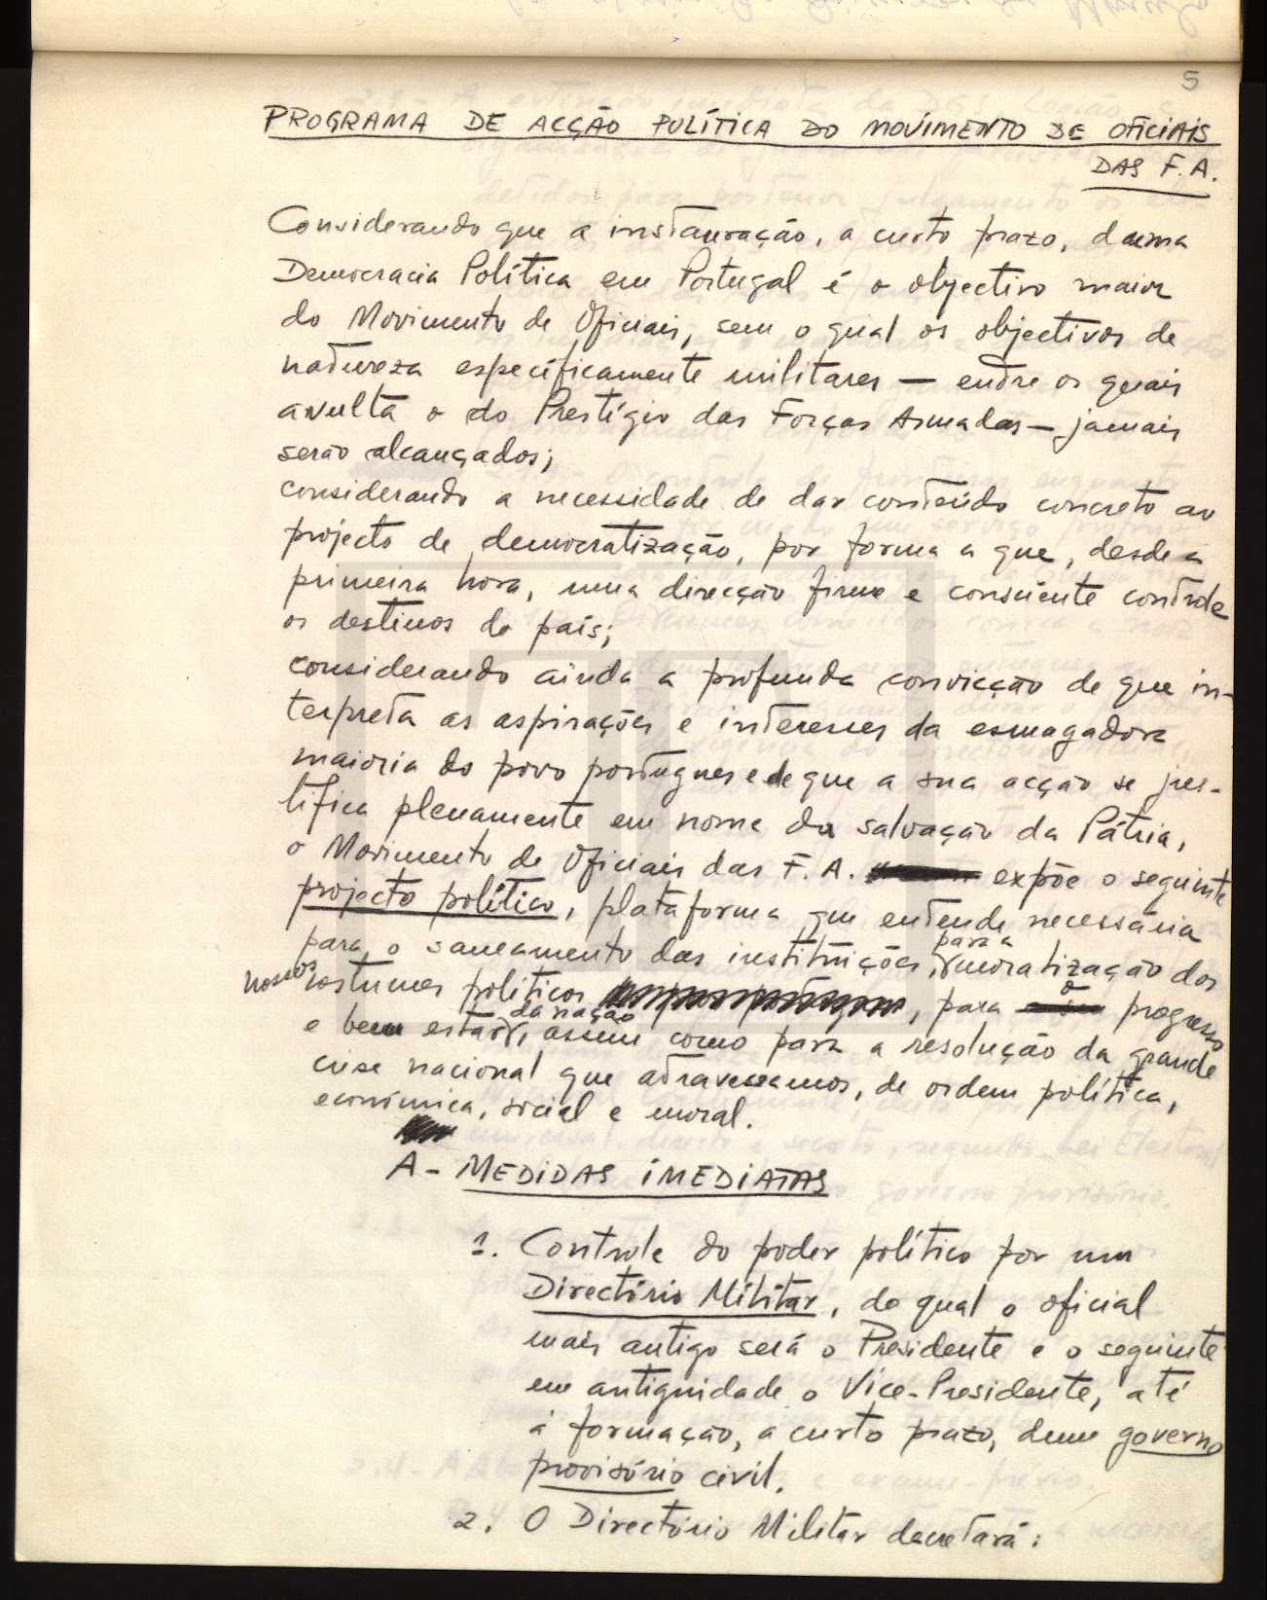 5
PROGRAMA DE ACÇÃO POLÍTICA DO MOVIMENTO DE OFICIAIS
DAS F.A.
Considerando que a instauração, a curto prazo, duma
Democracia Política em Portugal é o objectivo maior
do Movimento de Oficiais, sem o qual os objectivos de
natureza especificamente militares — entre os quais
avulta o do Prestígio das Forças Armadas — jamais
serão alcançados;
considerando a necessidade de dar conteúdo concreto ao
projecto de democratização, por forma a que, desde a
primeira hora, uma direcção firme e consciente controle
os destinos do país;
considerando ainda a profunda convicção de que in-
terpreta as aspirações e interesses da esmagadora
maioria do povo português e de que a sua acção se jus-
tifica plenamente em nome da salvação da Pátria,
o Movimento de Oficiais das F.A. expõe o seguinte
projecto político, plataforma que entende necessária
para o saneamento das instituições, para a moralização dos
nossos costumes políticos, para o progresso
e bem estar da nação, assim como para a resolução da grande
crise nacional que atravessamos, de ordem política,
económica, social e moral.
A - MEDIDAS IMEDIATAS
1. Controle do poder político por um
Directório Militar, do qual o oficial
mais antigo será o Presidente e o seguinte
em antiguidade o Vice-Presidente, até
à formação, a curto prazo, dum governo
provisório civil.
2. O Directório Militar decretará: